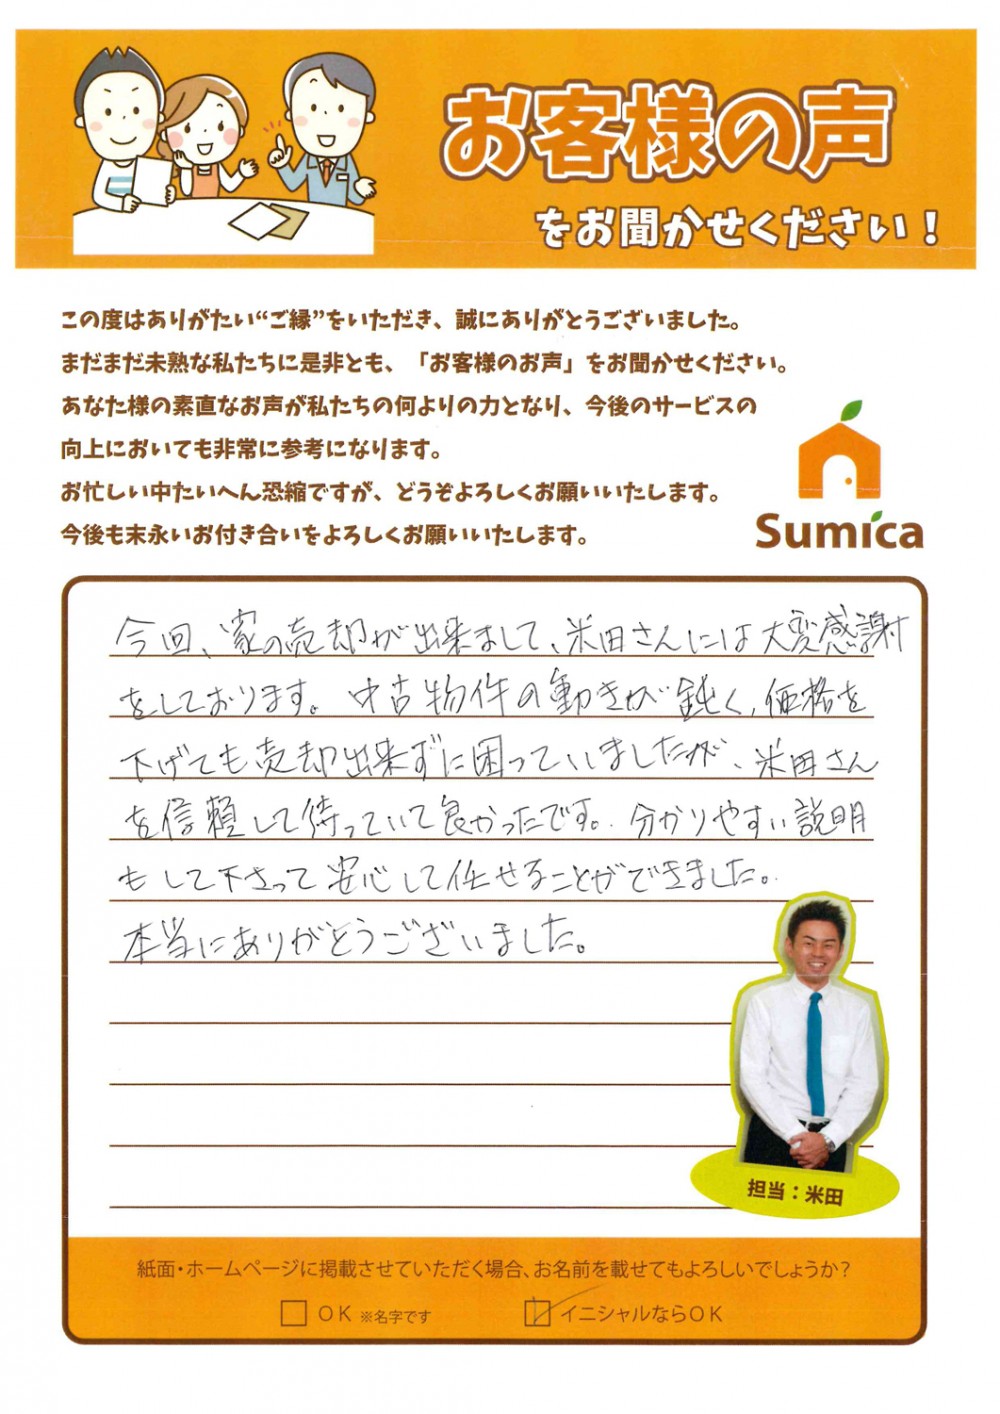 お客様の声
をお聞かせください！
この度はありがたい“ご縁”をいただき、誠にありがとうございました。
まだまだ未熟な私たちに是非とも、「お客様のお声」をお聞かせください。
あなた様の素直なお声が私たちの何よりの力となり、今後のサービスの
向上においても非常に参考になります。
お忙しい中たいへん恐縮ですが、どうぞよろしくお願いいたします。
今後も末永いお付き合いをよろしくお願いいたします。
Sumica
今回、家の売却が出来まして、米田さんには大変感謝
をしております。中古物件の動きが鈍く、価格を
下げても売却出来ずに困っていましたが、米田さん
を信頼して待っていて良かったです。分かりやすい説明
もして下さって安心して任せることができました。
本当にありがとうございました。
担当：米田
紙面・ホームページに掲載させていただく場合、お名前を載せてもよろしいでしょうか？
OK ※名字です
イニシャルならOK